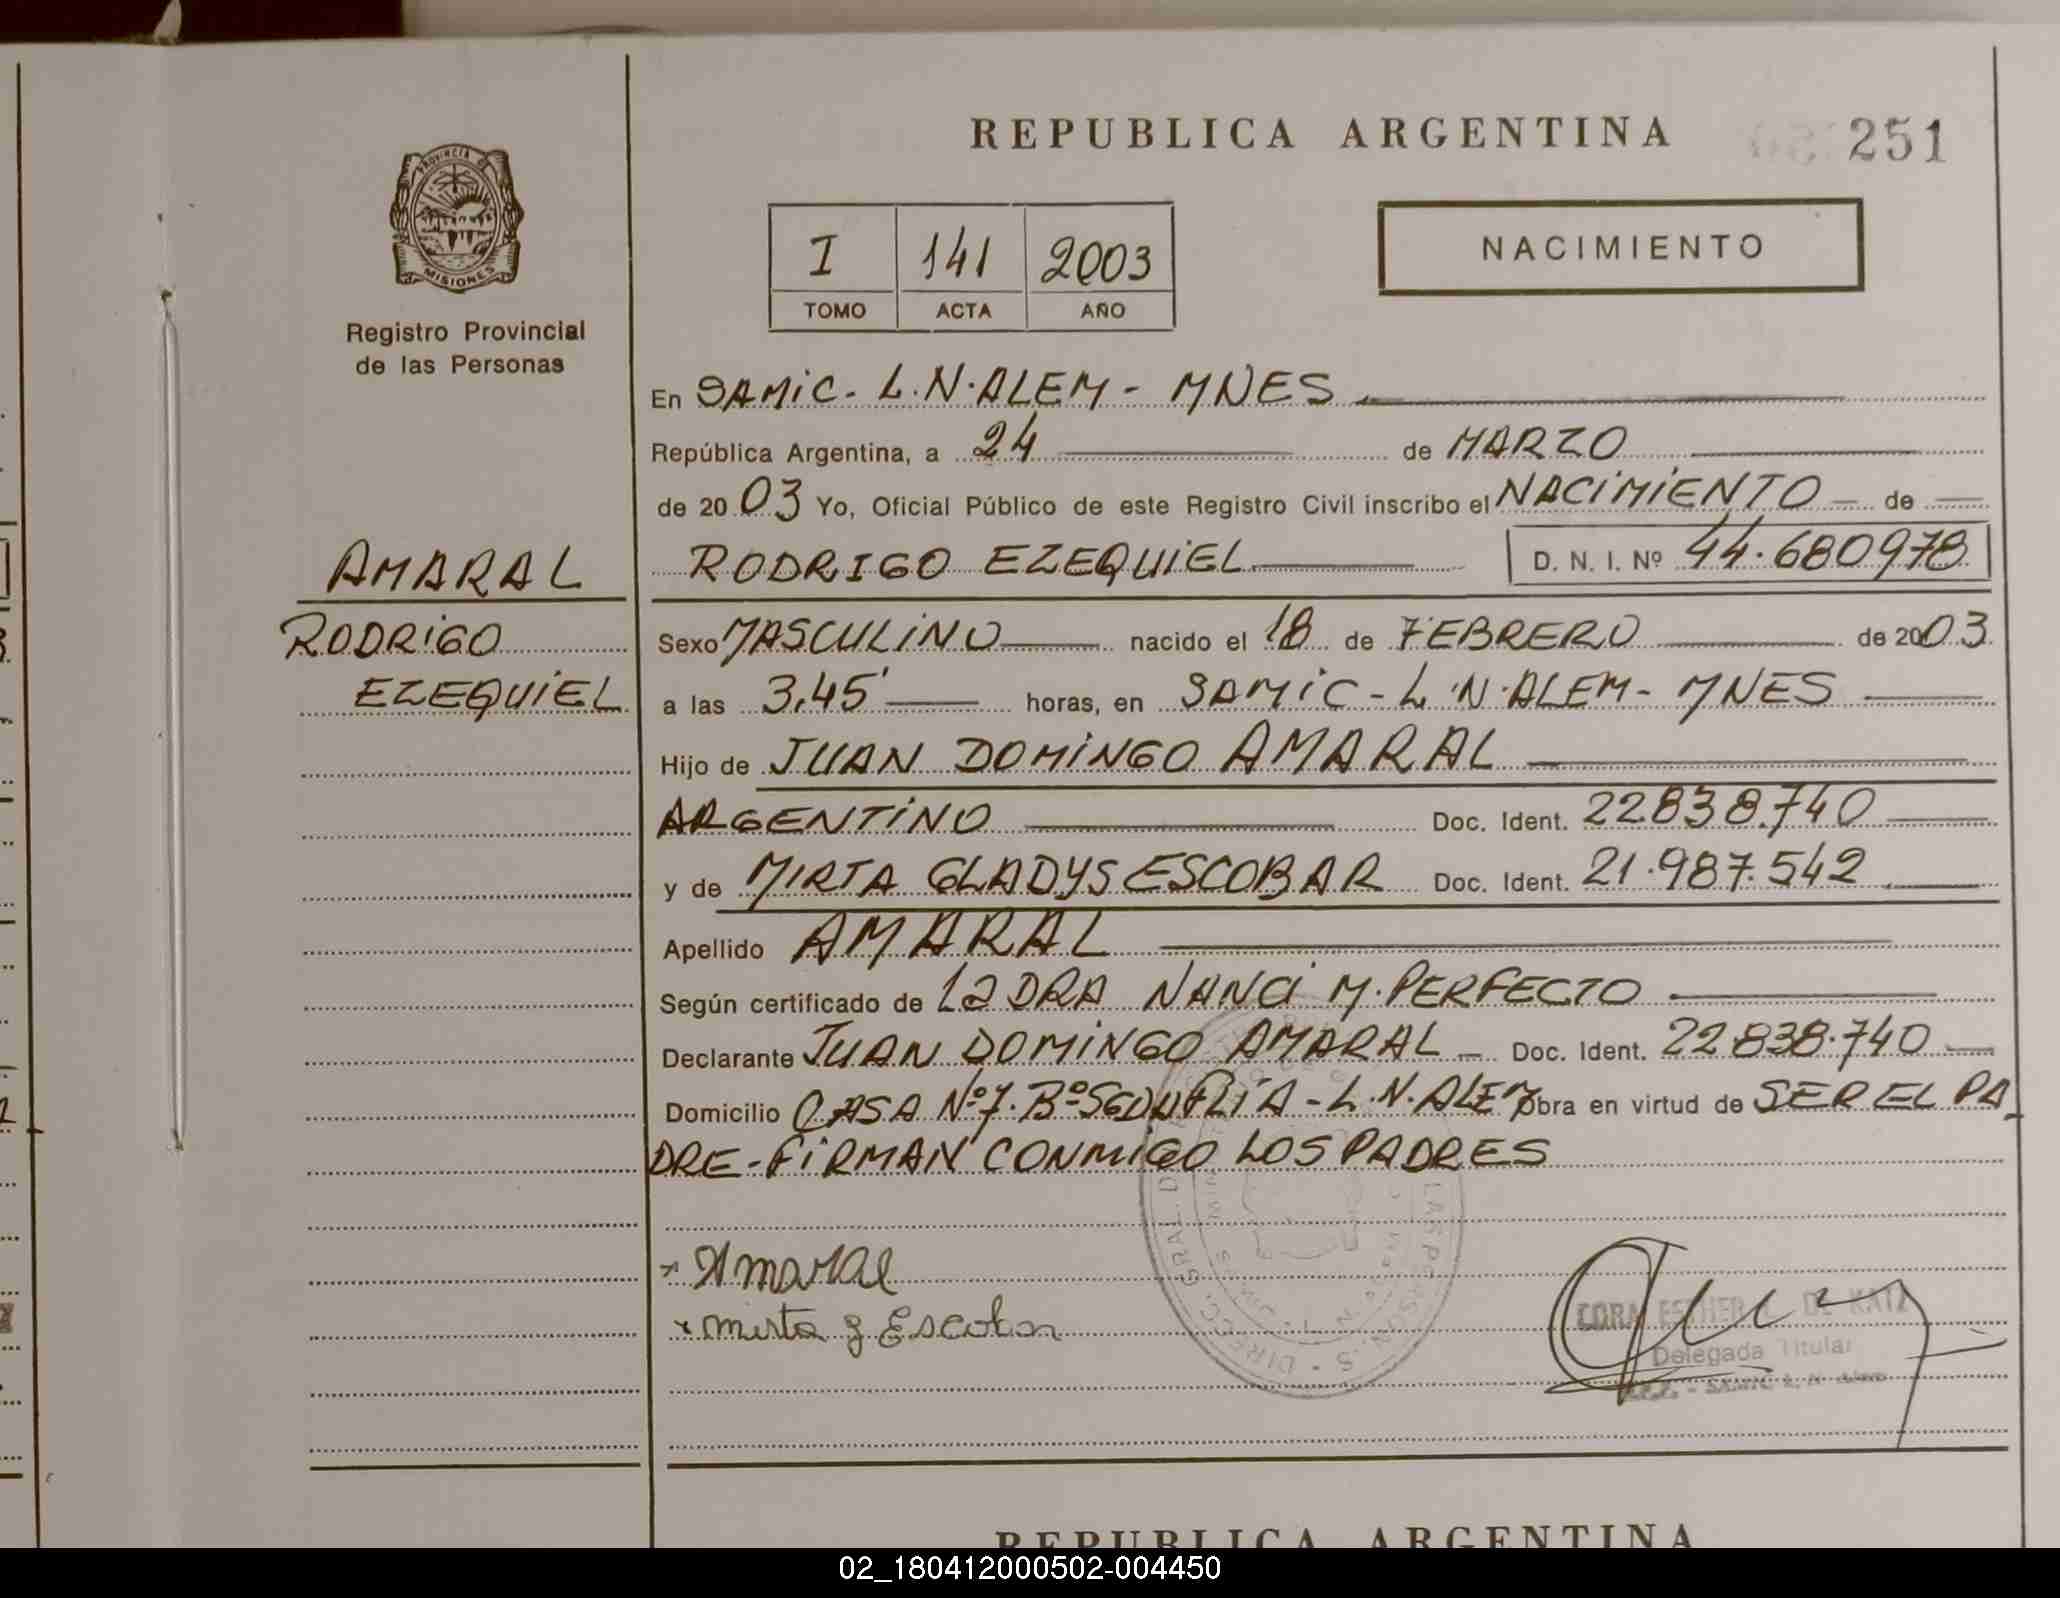 REPUBLICA ARGENTINA
251
PROVINCIA DE
MISIONES
Registro Provincial
de las Personas
I 141 2003
TOMO ACTA AÑO
NACIMIENTO
En SAMiC- L.N.ALEM - MNES
República Argentina, a 24 de MARZO
de 2003 Yo, Oficial Público de este Registro Civil inscribo el NACiMiENTO de
AMARAL
RODRiGO
EZEQUiEL
RODRIGO EZEQUiEL D. N. I. Nº 44.680978
Sexo MASCULiNO nacido el 18 de FEBRERO de 2003
a las 3,45' horas, en SAMiC - L.N.ALEM - MNES
Hijo de JUAN DOMiNGO AMARAL
ARGENTiNO Doc. Ident. 22.838.740
y de MIRTA GLADYS ESCOBAR Doc. Ident. 21.987.542
Apellido AMARAL
Según certificado de La DRA NANCi M. PERFECTO
Declarante JUAN DOMiNGO AMARAL - Doc. Ident. 22.838.740
Domicilio CASA Nº7. Bº - L.N.ALEM obra en virtud de SER EL PA
DRE - FiRMAN CONMiGO LOS PADRES
Amaral
mirta g Escobar
CORA ESTHER DE KATZ
Delegada Titular
SAMIC L. N. Alem
REPUBLICA ARGENTINA
02_180412000502-004450